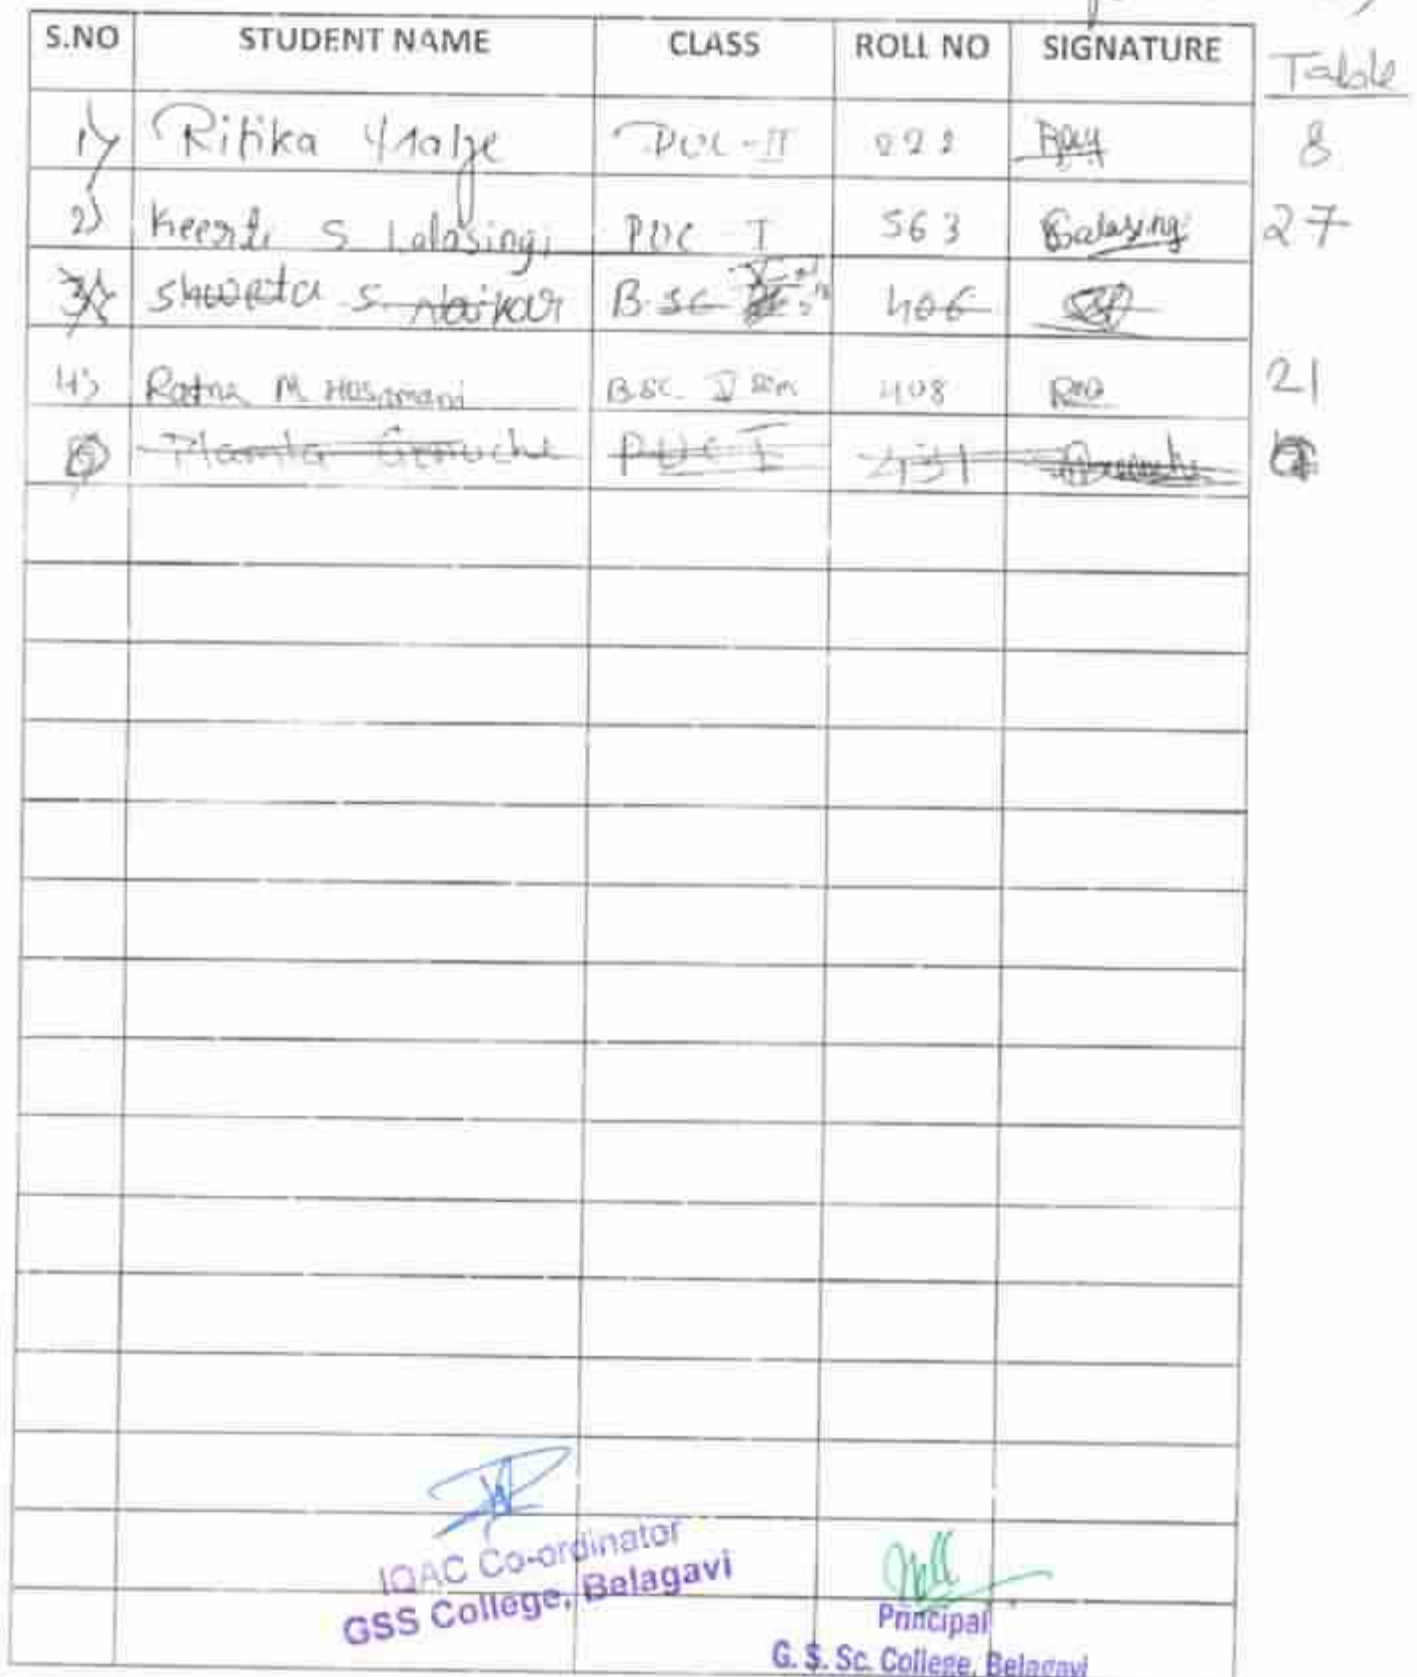 S.NO STUDENT NAME CLASS ROLL NO SIGNATURE Table
1) Ritika PUC-II 222 8
2) Keerti S Lalasingi PUC I 563 27
3) Shweta S Naikar B.SC 406
4) Ratna M Hosamani BSC V Sem 408 21
5 Mamta PUC I 431
IQAC Co-ordinator
GSS College, Belagavi
Principal
G. S. Sc. College, Belagavi